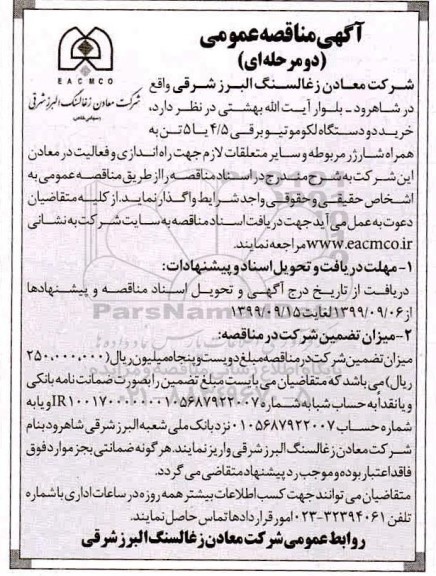 آگهی مناقصه عمومی
(دو مرحله‌ای)
EACMCO
شرکت معادن زغالسنگ البرز شرقی
(سهامی خاص)
شرکت معادن زغالسنگ البرز شرقی واقع
در شاهرود - بلوار آیت الله بهشتی در نظر دارد،
خرید دو دستگاه لکوموتیو برقی ۴/۵ یا ۵ تن به
همراه شارژر مربوطه و سایر متعلقات لازم جهت راه اندازی و فعالیت در معادن
این شرکت به شرح مندرج در اسناد مناقصه را از طریق مناقصه عمومی به
اشخاص حقیقی و حقوقی واجد شرایط واگذار نماید. از کلیه متقاضیان
دعوت به عمل می آید جهت دریافت اسناد مناقصه به سایت شرکت به نشانی
www.eacmco.ir مراجعه نمایند.
۱- مهلت دریافت و تحویل اسناد و پیشنهادات:
دریافت از تاریخ درج آگهی و تحویل اسناد مناقصه و پیشنهادها
از ۱۳۹۹/۰۹/۰۶ لغایت ۱۳۹۹/۰۹/۱۵
۲- میزان تضمین شرکت در مناقصه:
میزان تضمین شرکت در مناقصه مبلغ دویست و پنجاه میلیون ریال (۲۵۰,۰۰۰,۰۰۰
ریال) می باشد که متقاضیان می بایست مبلغ تضمین را بصورت ضمانت نامه بانکی
و یا نقداً به حساب شبا به شماره IR۱۰۰۱۷۰۰۰۰۰۰۰۱۰۵۶۸۷۹۲۲۰۰۷ و یا به
شماره حساب ۰۱۰۵۶۸۷۹۲۲۰۰۷ نزد بانک ملی شعبه البرز شرقی شاهرود بنام
شرکت معادن زغالسنگ البرز شرقی واریز نمایند. هرگونه ضمانتی بجز موارد فوق
فاقد اعتبار بوده و موجب رد پیشنهاد متقاضی می گردد.
متقاضیان می توانند جهت کسب اطلاعات بیشتر همه روزه در ساعات اداری با شماره
تلفن ۳۲۳۹۴۰۶۱-۰۲۳ امور قراردادها تماس حاصل نمایند.
روابط عمومی شرکت معادن زغالسنگ البرز شرقی